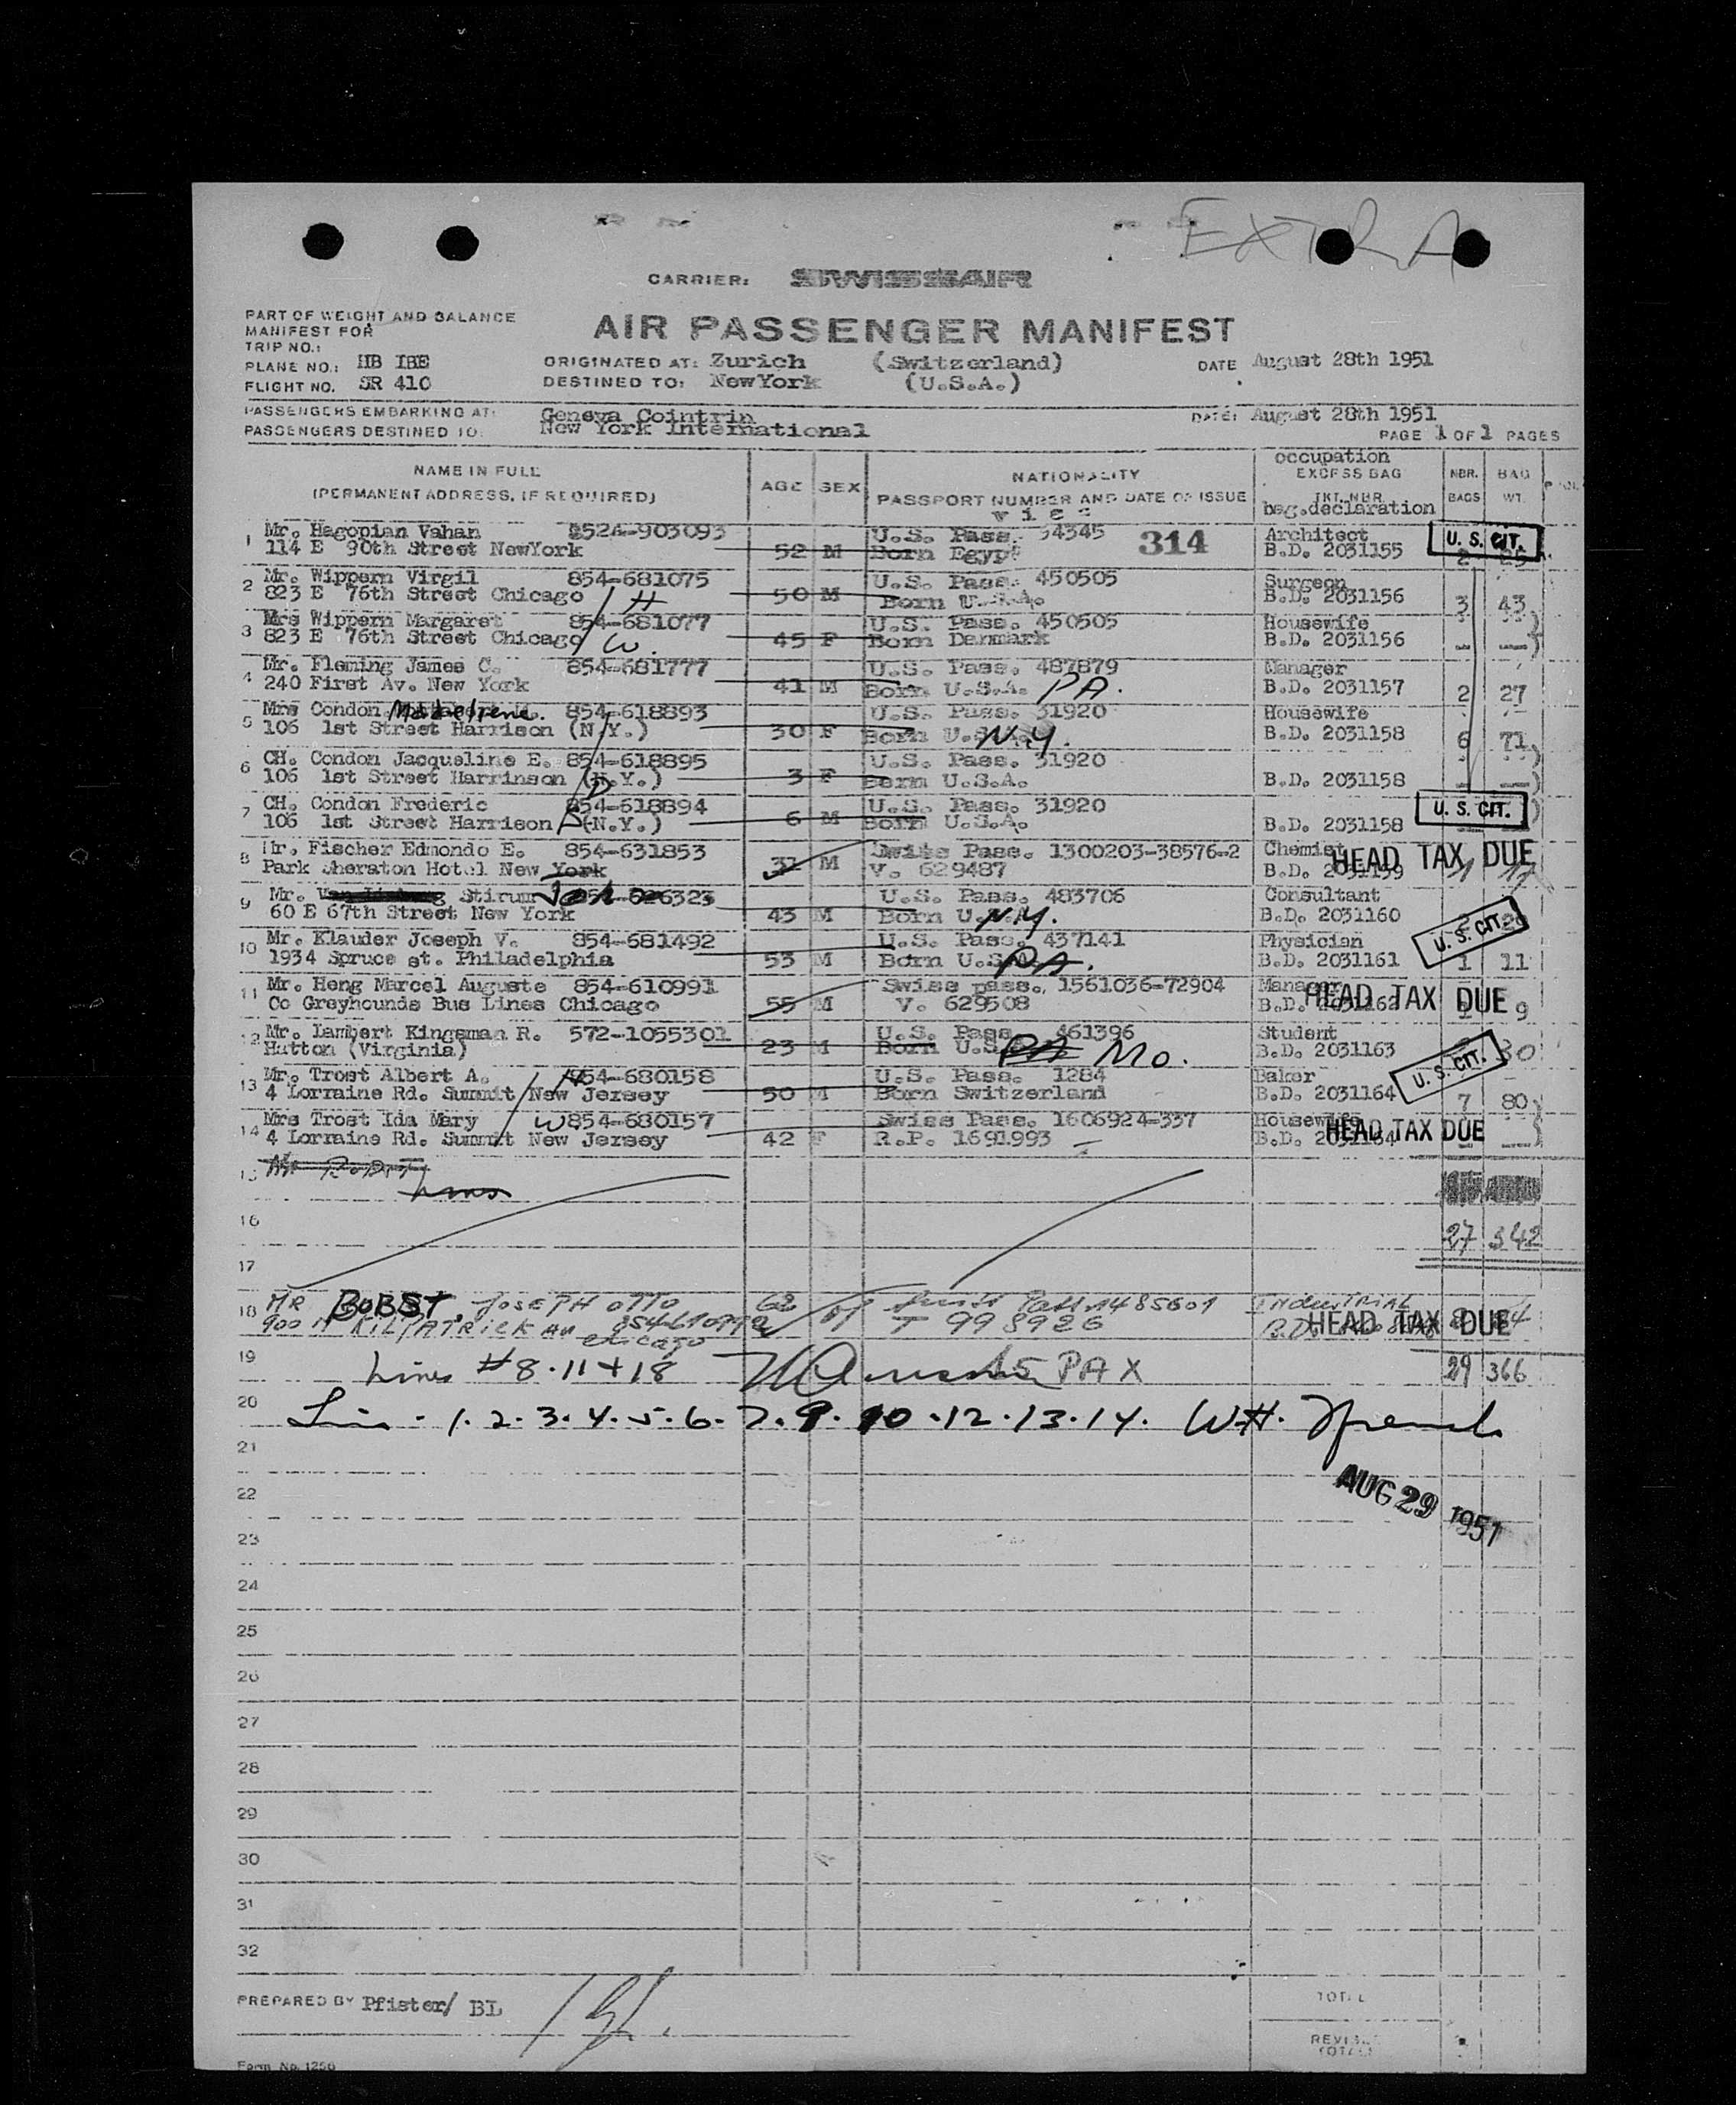 EXTRA
CARRIER: SWISSAIR
PART OF WEIGHT AND BALANCE
MANIFEST FOR
AIR PASSENGER MANIFEST
TRIP NO.:
PLANE NO.: HB IBE ORIGINATED AT: Zurich (Switzerland) DATE August 28th 1951
FLIGHT NO. SR 410 DESTINED TO: NewYork (U.S.A.)
PASSENGERS EMBARKING AT: Geneva Cointrin DATE: August 28th 1951
PASSENGERS DESTINED TO: New York International
PAGE 1 OF 1 PAGES
NAME IN FULL AGE SEX NATIONALITY occupation EXCESS BAG NBR. BAG
(PERMANENT ADDRESS, IF REQUIRED) PASSPORT NUMBER AND DATE OF ISSUE TKT. NBR. BAGS WT.
bag.declaration
1 Mr. Hagopian Vahan 852A-903093 U.S. Pass. 94345 314 Architect U. S. CIT.
114 E 90th Street NewYork 52 M Born Egypt B.D. 2031155
2 Mr. Wippern Virgil 854-681075 U.S. Pass. 450505 Surgeon
823 E 76th Street Chicago H 50 M Born U.S.A. B.D. 2031156 3 43
3 Mrs Wippern Margaret 854-681077 U.S. Pass. 450505 Housewife
823 E 76th Street Chicago W. 45 F Born Denmark B.D. 2031156
4 Mr. Fleming James C. 854-681777 U.S. Pass. 487879 Manager
240 First Av. New York 41 M Born U.S.A. PA. B.D. 2031157 2 27
5 Mrs Condon 854-618893 U.S. Pass. 31920 Housewife
106 1st Street Harrison (N.Y.) 30 F Born U.S.A. N.Y. B.D. 2031158 6 71
6 CH. Condon Jacqueline E. 854-618895 U.S. Pass. 31920
106 1st Street Harrinson (N.Y.) 3 F Born U.S.A. B.D. 2031158
7 CH. Condon Frederic 854-618894 U.S. Pass. 31920 U. S. CIT.
106 1st Street Harrison (N.Y.) 6 M Born U.S.A. B.D. 2031158
8 Mr. Fischer Edmondo E. 854-631853 Swiss Pass. 1300203-38576-2 Chemist HEAD TAX DUE
Park Sheraton Hotel New York 31 M V. 629487 B.D. 2031159
9 Mr. Stirum U.S. Pass. 483706 Consultant
60 E 67th Street New York 43 M Born U. N.Y. B.D. 2031160 U. S. CIT.
10 Mr. Klauder Joseph V. 854-681492 U.S. Pass. 437141 Physician
1934 Spruce st. Philadelphia 53 M Born U.S.A. PA. B.D. 2031161 1 11
11 Mr. Heng Marcel Auguste 854-610991 Swiss pass. 1561036-72904 Manager HEAD TAX DUE
Co Greyhounds Bus Lines Chicago 55 M V. 629508 B.D. 2031162 9
12 Mr. Lambert Kingsman R. 572-1055301 U.S. Pass. 461396 Student
Hatton (Virginia) 23 M Born U.S. PA Mo. B.D. 2031163 30
13 Mr. Trost Albert A. 854-680158 U.S. Pass. 1284 Baker U. S. CIT.
4 Lorraine Rd. Summit New Jersey 50 M Born Switzerland B.D. 2031164 7 80
14 Mrs Trost Ida Mary W 854-680157 Swiss Pass. 1606924-337 Housewife HEAD TAX DUE
4 Lorraine Rd. Summit New Jersey 42 F R.P. 1691993 B.D. 2031164
15
16 27 342
17
18 MR BOBST, JOSEPH OTTO 62 M Pass. 1485601 INDUSTRIAL HEAD TAX DUE
900 N KILPATRICK AV chicago T 998926 B.D.
19 Lines #8.11+18 15 PAX 29 366
20 1. 2. 3. 4. 5. 6. 7. 9. 10. 12. 13. 14. W.H.
21
AUG 29 1951
22
23
24
25
26
27
28
29
30
31
32
PREPARED BY Pfister/ BL TOTAL
REVISED TOTAL
Form No. 1256